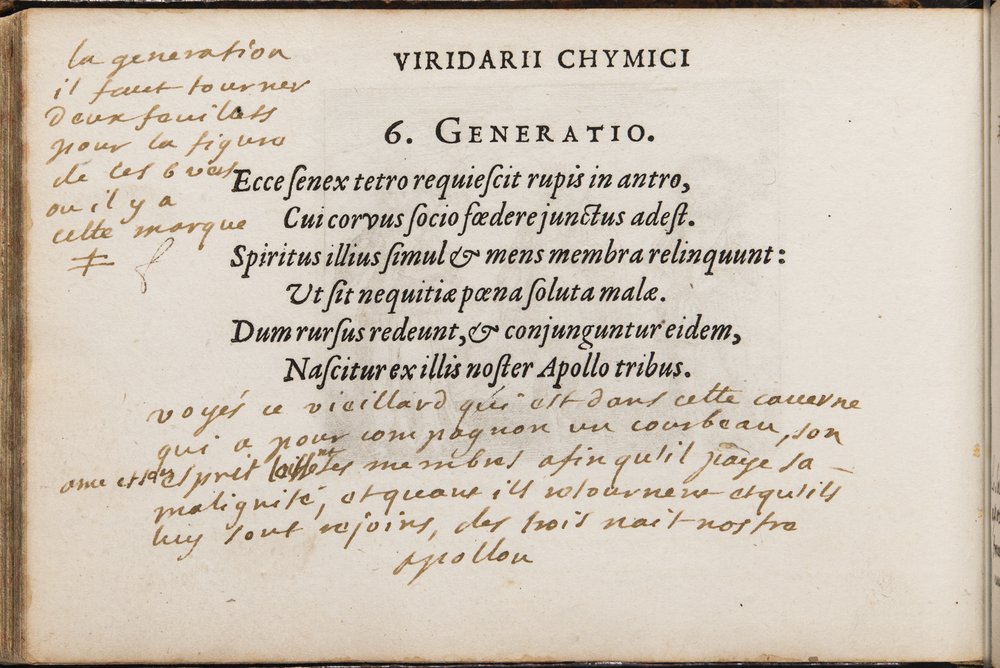 VIRIDARII CHYMICI
la generation
il faut tourner
deux feuillets
pour la figure
de ces 6 vers
ou il y a
cette marque
‡
6. GENERATIO.
Ecce ſenex tetro requieſcit rupis in antro,
Cui corvus ſocio fœdere junctus adeſt.
Spiritus illius ſimul & mens membra relinquunt:
Ut ſit nequitiæ pœna ſoluta malæ.
Dum rurſus redeunt, & conjunguntur eidem,
Naſcitur ex illis noſter Apollo tribus.
voyés ce vieillard qui est dans cette caverne
qui a pour compagnon un courbeau, son
ame et son esprit laissent les membres afin qu'il paye sa
malignité, et quant ils retournent et qu'ils
luy sont rejoins, des trois nait nostre
apollon